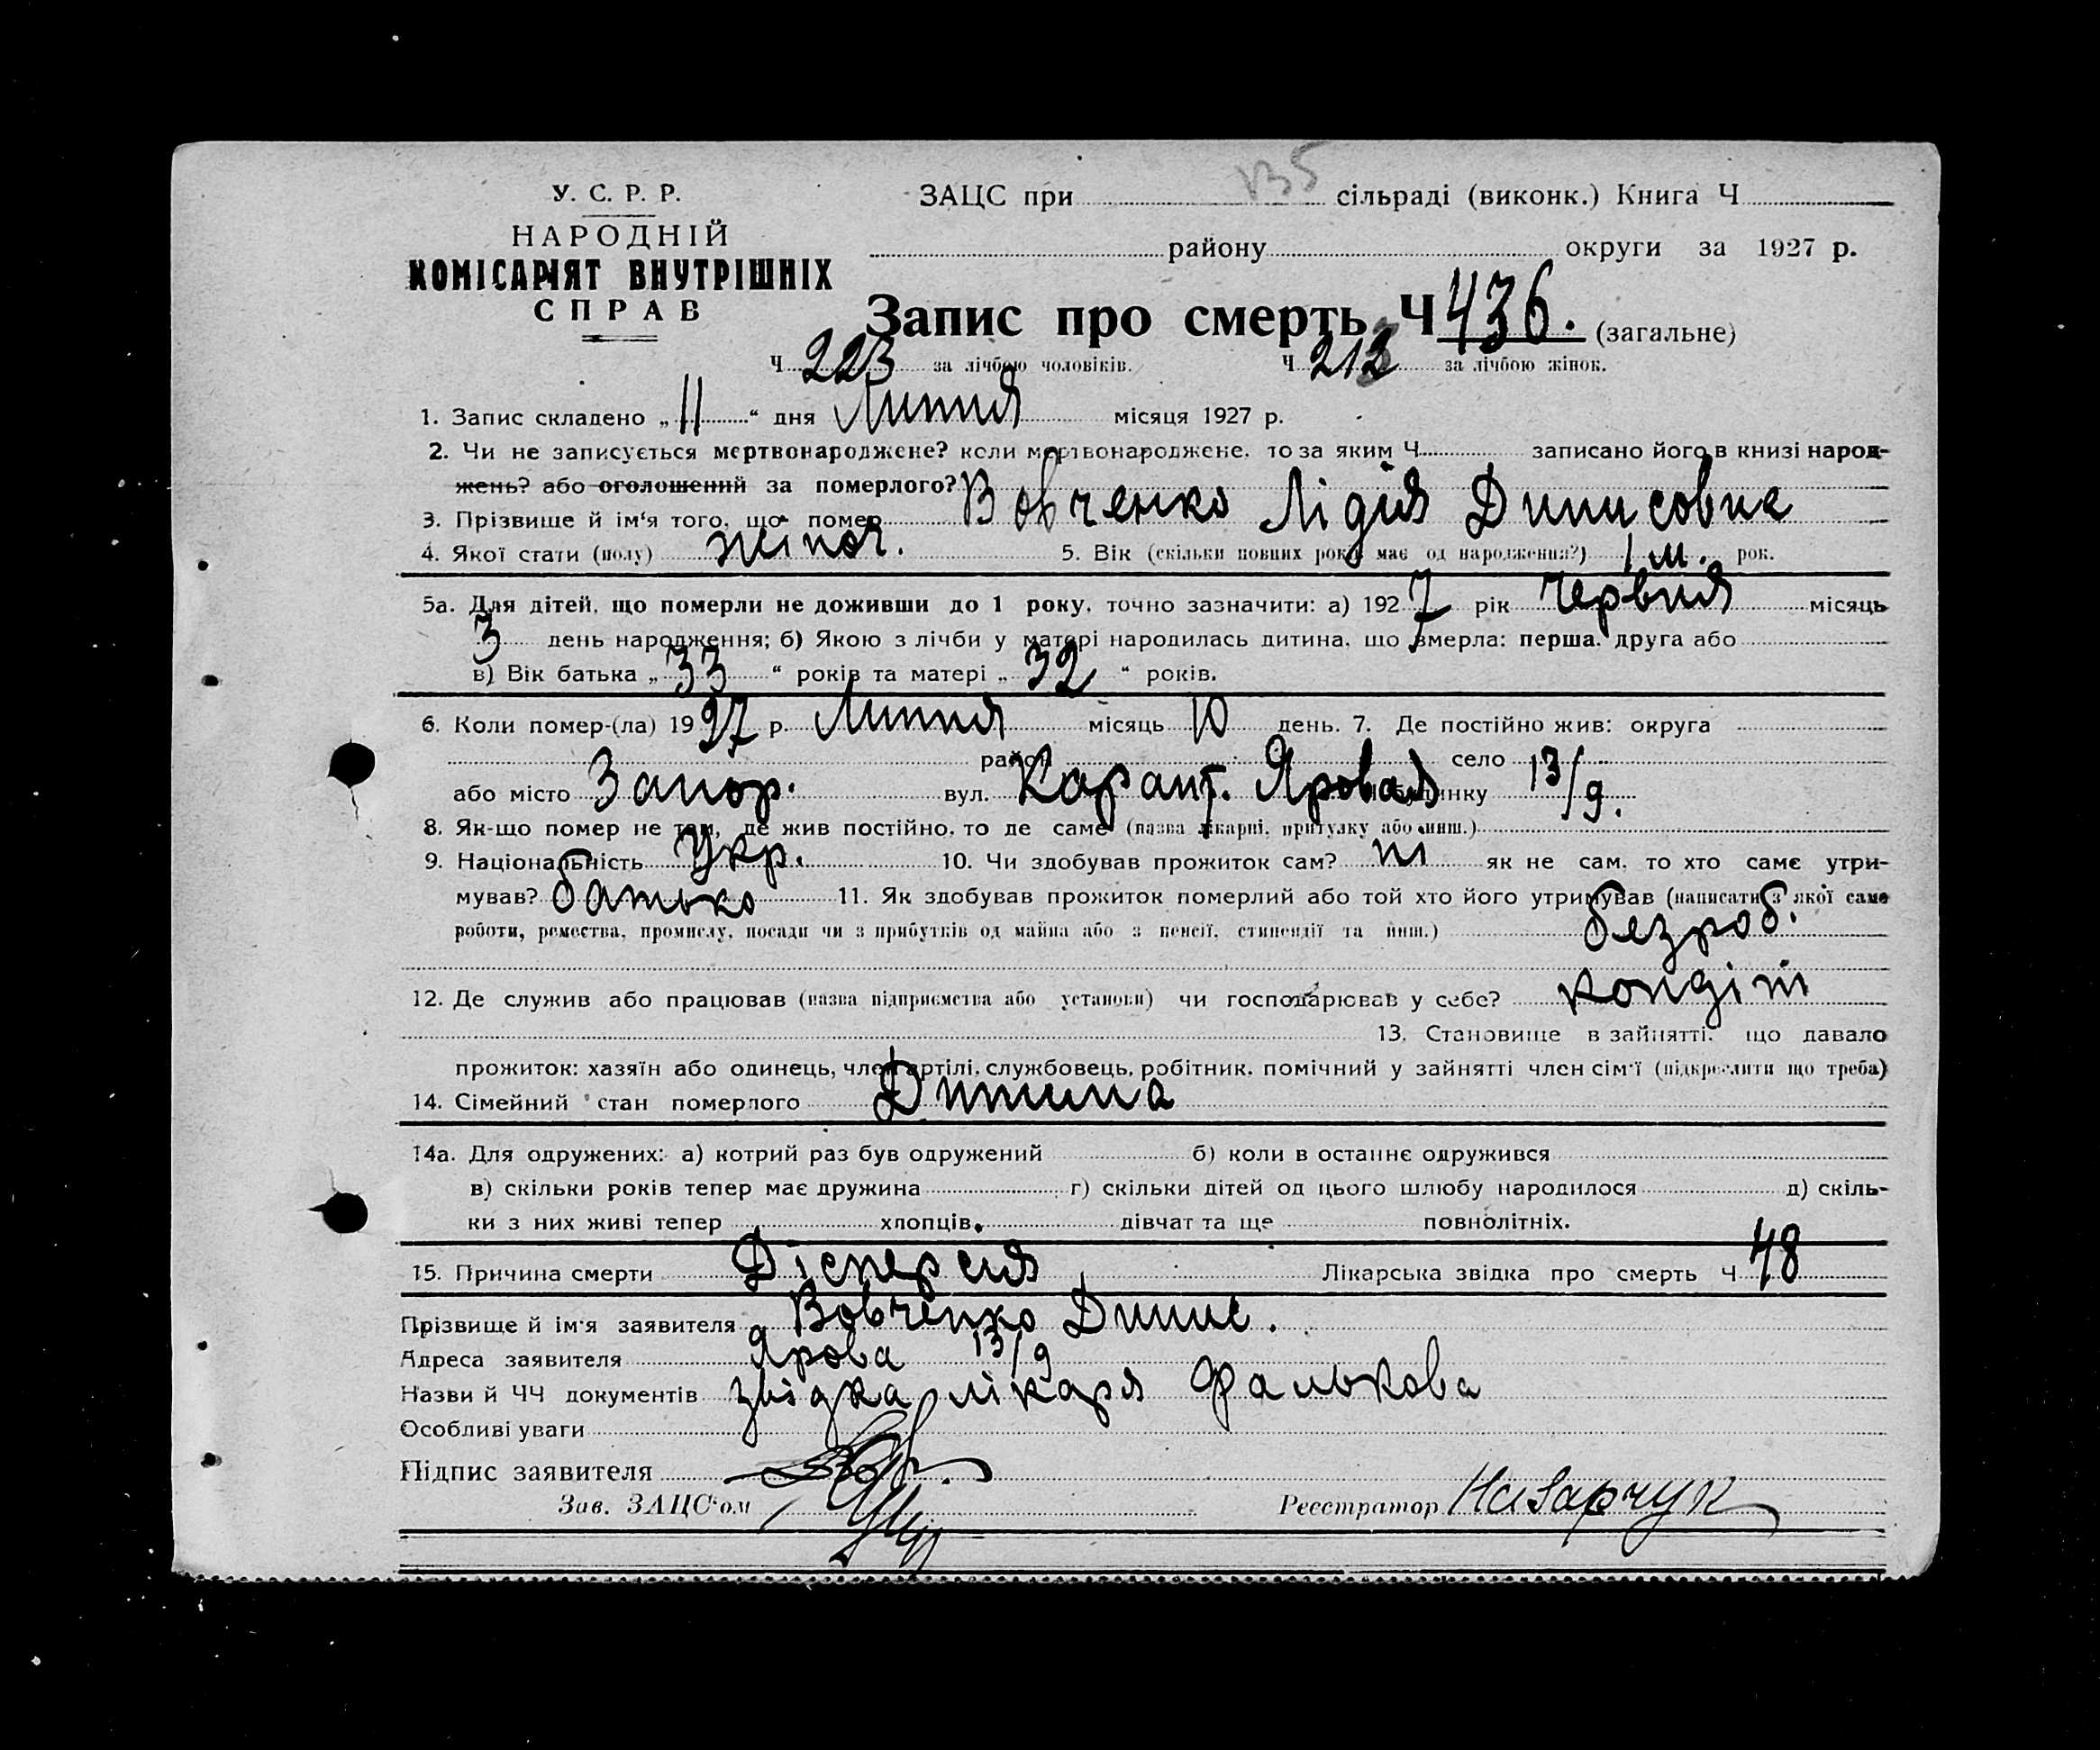 У. С. Р. Р.
НАРОДНІЙ
КОМІСАРІЯТ ВНУТРІШНІХ
СПРАВ
ЗАЦС при сільраді (виконк.) Книга Ч
району округи за 1927 р.
Запис про смерть Ч 436. (загальне)
Ч 223 за лічбою чоловіків. Ч 213 за лічбою жінок.
1. Запис складено „ 11 “ дня Липня місяця 1927 р.
2. Чи не записується мертвонароджене? коли мертвонароджене, то за яким Ч записано його в книзі народ-
жень? або оголошений за померлого?
3. Прізвище й ім‘я того, що помер Вовченко Лідія Динисовна
4. Якої стати (полу) жіноч. 5. Вік (скільки повних років має од народження?) 1 м. рок.
5а. Для дітей, що померли не доживши до 1 року, точно зазначити: а) 1927 рік Червня місяць
3 день народження; б) Якою з лічби у матері народилась дитина, що вмерла: перша, друга або
в) Вік батька „ 33 “ років та матері „ 32 “ років.
6. Коли помер-(ла) 1927 р. Липня місяць 10 день. 7. Де постійно жив: округа
район село
або місто Запор. вул. Карант. Яровая будинку 13/9.
8. Як-що помер не там, де жив постійно, то де саме (назва лікарні, притулку або инш.)
9. Національність Укр. 10. Чи здобував прожиток сам? ні як не сам, то хто саме утри-
мував? батько 11. Як здобував прожиток померлий або той хто його утримував (написати з якої саме
роботи, ремества, промислу, посади чи з прибутків од майна або з пенсії, стипендії та инш.) безроб.
12. Де служив або працював (назва підприємства або установи) чи господарював у себе? кондіт
13. Становище в зайнятті, що давало
прожиток: хазяїн або одинець, член артілі, службовець, робітник, помічний у зайнятті член сім‘ї (підкреслити що треба)
14. Сімейний стан померлого Дитина
14а. Для одружених: а) котрий раз був одружений б) коли в останнє одружився
в) скільки років тепер має дружина г) скільки дітей од цього шлюбу народилося д) скіль-
ки з них живі тепер хлопців, дівчат та ще повнолітніх.
15. Причина смерти Дісперсія Лікарська звідка про смерть Ч 48
Прізвище й ім‘я заявителя Вовченко Динис.
Адреса заявителя Ярова 13/9
Назви й ЧЧ документів звідка лікаря Фалькова
Особливі уваги
Підпис заявителя
Зав. ЗАЦС‘ом Реєстратор Назарчук